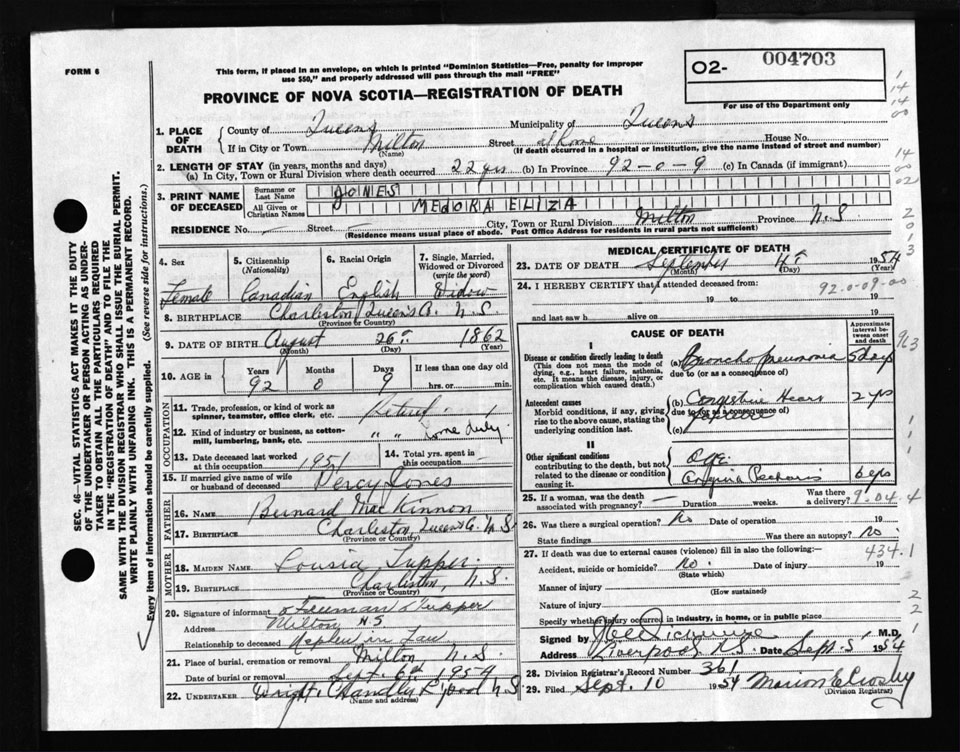 FORM 6
This form, if placed in an envelope, on which is printed "Dominion Statistics—Free, penalty for improper
use $50," and properly addressed will pass through the mail "FREE"
O2- 004703
For use of the Department only
PROVINCE OF NOVA SCOTIA—REGISTRATION OF DEATH
SEC. 46—VITAL STATISTICS ACT MAKES IT THE DUTY
OF THE UNDERTAKER OR PERSON ACTING AS UNDER-
TAKER TO OBTAIN ALL THE PARTICULARS REQUIRED
IN THE "REGISTRATION OF DEATH" AND TO FILE THE
SAME WITH THE DIVISION REGISTRAR WHO SHALL ISSUE THE BURIAL PERMIT.
WRITE PLAINLY WITH UNFADING INK. THIS IS A PERMANENT RECORD.
Every item of information should be carefully supplied. (See reverse side for instructions.)
1. PLACE OF DEATH
County of Queens Municipality of Queens
If in City or Town Milton Street at Home House No.
(Name) (If death occurred in a hospital or institution, give the name instead of street and number)
2. LENGTH OF STAY (in years, months and days)
(a) In City, Town or Rural Division where death occurred 22 yrs (b) In Province 92-0-9 (c) In Canada (if immigrant)
3. PRINT NAME OF DECEASED
Surname or Last Name JONES
All Given or Christian Names MEDORA ELIZA
RESIDENCE No. — Street — City, Town or Rural Division Milton Province N.S.
(Residence means usual place of abode. Post Office Address for residents in rural parts not sufficient)
4. Sex Female
5. Citizenship (Nationality) Canadian
6. Racial Origin English
7. Single, Married, Widowed or Divorced (write the word) Widow
8. BIRTHPLACE Charleston Queen's Co. N.S.
(Province or Country)
9. DATE OF BIRTH August 26th 1862
(Month) (Day) (Year)
10. AGE in Years 92 Months 0 Days 9 If less than one day
hrs. or min.
OCCUPATION
11. Trade, profession, or kind of work as
spinner, teamster, office clerk, etc. Retired
12. Kind of industry or business, as cotton-
mill, lumbering, bank, etc. " " Home duty
13. Date deceased last worked
at this occupation 1951
14. Total yrs. spent in
this occupation -
15. If married give name of wife
or husband of deceased Percy Jones
FATHER
16. NAME Bernard MacKinnon
17. BIRTHPLACE Charleston, Queens Co. N.S.
(Province or Country)
MOTHER
18. MAIDEN NAME Lousia Tupper
19. BIRTHPLACE Charleston, N.S.
(Province or Country)
20. Signature of informant Freeman Tupper
Address Milton N.S
Relationship to deceased Nephew in Law
21. Place of burial, cremation or removal Milton N.S.
Date of burial or removal Sept. 6th 1954
22. UNDERTAKER Wright Chandler L'pool N.S
(Name and address)
MEDICAL CERTIFICATE OF DEATH
23. DATE OF DEATH September 4th 1954
(Month) (Day) (Year)
24. I HEREBY CERTIFY that I attended deceased from:
19 to 19
and last saw h alive on 19
92.0-09-00
CAUSE OF DEATH
Approximate interval between onset and death
I
Disease or condition directly leading to death
(This does not mean the mode of dying, e.g., heart failure, asthenia, etc. It means the disease, injury, or complication which caused death.)
(a) Broncho pneumonia 5 days
due to (or as a consequence of)
Antecedent causes
Morbid conditions, if any, giving rise to the above cause, stating the underlying condition last.
(b) Congestive Heart failure 2 yrs
due to (or as a consequence of)
(c)
II
Other significant conditions
contributing to the death, but not related to the disease or condition causing it.
Age
Angina Pectoris 6 yrs
25. If a woman, was the death
associated with pregnancy? — Duration weeks. Was there
a delivery?
26. Was there a surgical operation? No Date of operation 19
State findings Was there an autopsy? No
27. If death was due to external causes (violence) fill in also the following:—
Accident, suicide or homicide? No. Date of injury 19
(State which)
434.1
Manner of injury
(How sustained)
Nature of injury
Specify whether injury occurred in industry, in home, or in public place
Signed by M.D.
Address Liverpool N.S. Date Sept. 5 1954
28. Division Registrar's Record Number 361
29. Filed Sept. 10 1954 Marion C Crosby
(Division Registrar)